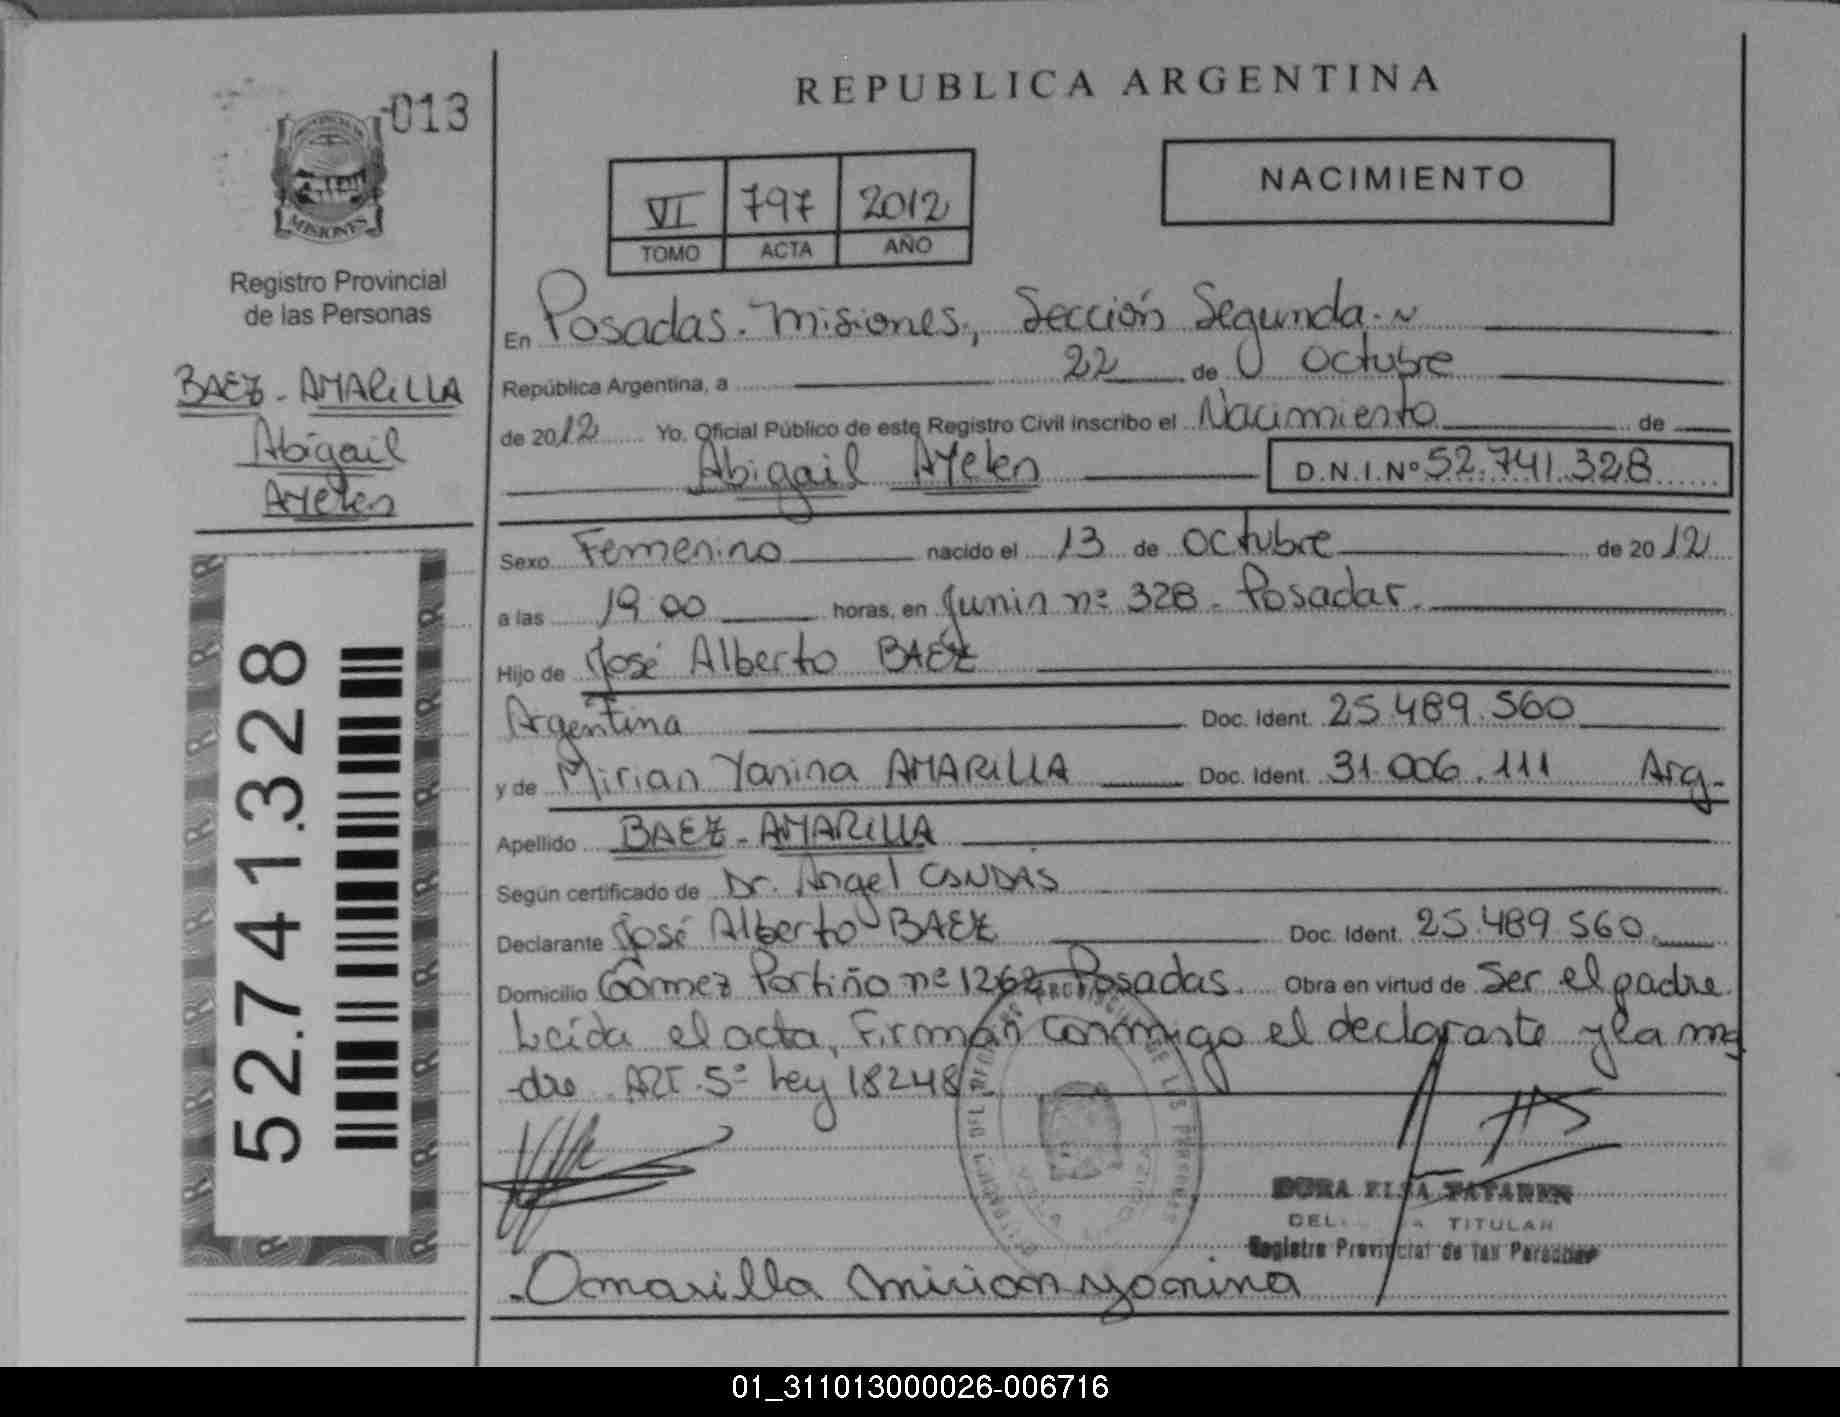 013
PROVINCIA DE
MISIONES
Registro Provincial
de las Personas
BAEZ - AMARILLA
Abigail
Ayelen
52.741.328
REPUBLICA ARGENTINA
VI 797 2012
TOMO ACTA AÑO
NACIMIENTO
En Posadas. Misiones, Sección Segunda.
República Argentina, a 22 de Octubre
de 2012 Yo, Oficial Público de este Registro Civil inscribo el Nacimiento de
Abigail Ayelen D.N.I.Nº 52.741.328
Sexo Femenino nacido el 13 de octubre de 2012
a las 19.00 horas, en Junin nº 328. Posadas.
Hijo de José Alberto BAEZ
Argentina Doc. Ident. 25.489.560
y de Mirian Yanina AMARILLA Doc. Ident. 31.006.111 Arg.
Apellido BAEZ - AMARILLA
Según certificado de Dr. Angel
Declarante José Alberto BAEZ Doc. Ident. 25.489.560.
Domicilio Gómez Portiño nº 1262 Posadas. Obra en virtud de Ser el padre.
Leída el acta, Firman conmigo el declarante y la ma
-dre. ART. 5º Ley 18248
TITULAR
Registro Provincial de las Personas
Amarilla mirian yanina
01_311013000026-006716